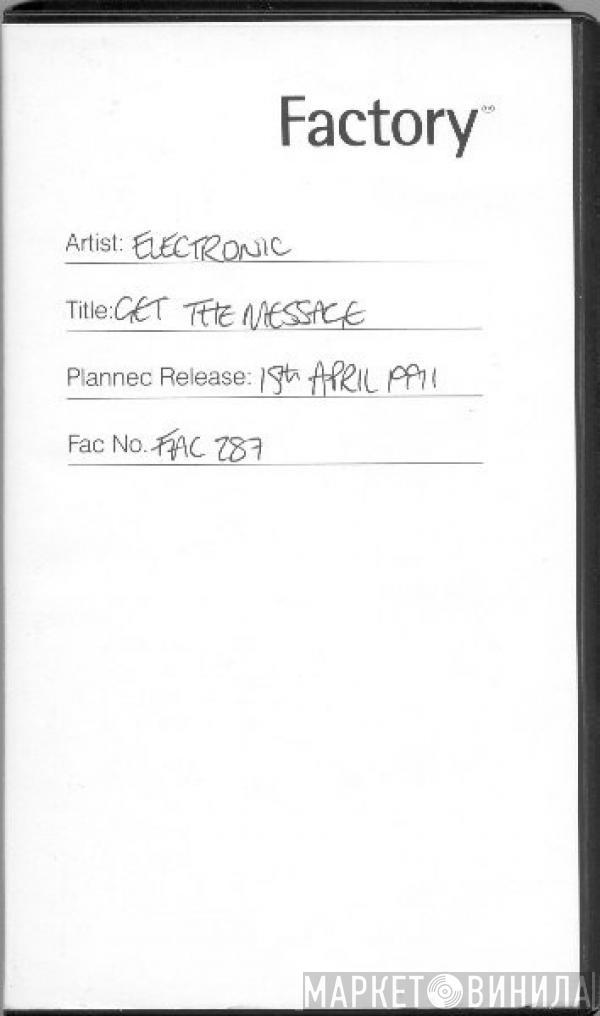 Factory
Artist: ELECTRONIC
Title: GET THE MESSAGE
Plannec Release: 15th APRIL 1991
Fac No. FAC 287
МАРКЕТ ВИНИЛА